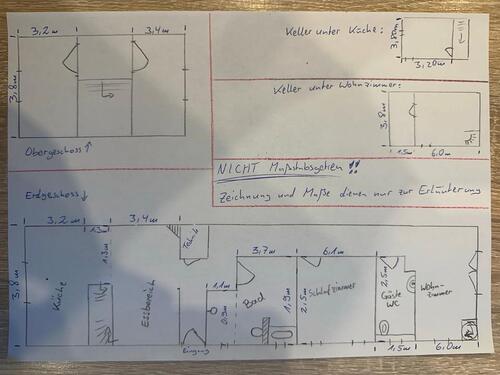 3,2m
3,4m
3,8m
Obergeschoss ↑
Keller unter Küche:
3,80m
3,20m
Keller unter Wohnzimmer:
3,8m
1,5m
6,0m
NICHT Maßstabsgetreu !!
Zeichnung und Maße dienen nur zur Erläuterung
Erdgeschoss ↓
3,2m
3,4m
1,3
1,3m
3,8m
Küche
Essbereich
Technik
Eingang
1,1m
0,9m
3,7m
Bad
1,9m
6,1m
2,5m
Schlafzimmer
2,5m
Gäste
WC
1,5m
Wohn-
zimmer
6,0m